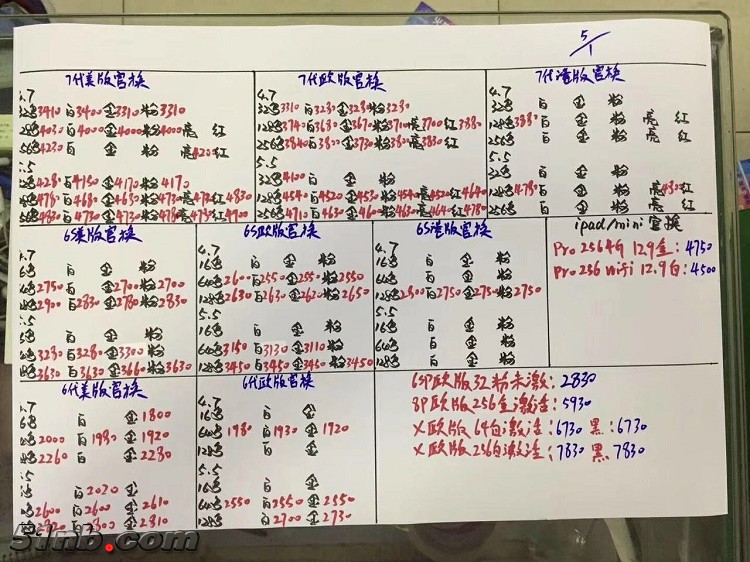 5/1
7代美版官换
4.7
3410 白3400 金3310 粉3310
4030 白4000 金4000 粉4000 亮 红
4230 白 金 粉 亮4200 红
5.5
4280 白4150 金4170 粉4170
4780 白4680 金4630 粉4730 红4830
4830 白4730 金4730
7代欧版官换
4.7
32G 3310 白3280 金3280 粉3280
128G 3740 白3680 金3670 粉3710 亮3700 红3880
256G 3840 白3800 金3730 粉3800 亮3830 红
5.5
32G 4100 白 金 粉
128G 4540 白4520 金4530 粉4540 亮4520 红4640
256G 4710 白4630 金4600 粉4630 亮4640 红4780
7代港版官换
4.7
32G 白 金 粉
128G 3880 白 金 粉 亮 红
256G 白 金 粉 亮 红
5.5
32G 白 金 粉
128G 4780 白 金 粉 亮4800 红
256G 白 金 粉 亮 红
6S美版官换
4.7
白 金 粉
2750 白 金2700 粉2700
2900 白2830 金2780 粉2830
5.5
白 金 粉
3280 白3280 金3300 粉
3630 白3630 金3660 粉3630
6S欧版官换
4.7
16G 白 金 粉
64G 2600 白2550 金2550 粉2550
128G 2630 白2630 金2620 粉2650
5.5
16G 白 金 粉
64G 3150 白3130 金3110 粉
128G 3450 白3450 金3450 粉3450
6S港版官换
4.7
16G 白 金 粉
64G 白 金 粉
128G 2800 白2750 金2750 粉2750
5.5
16G 白 金 粉
64G 白 金 粉
128G 白 金 粉
ipad/mini官换
Pro 256 4G 12.9金:4750
Pro 256 wifi 12.9白:4500
6代美版官换
4.7
白 金1800
2000 白1980 金1920
2260 白 金2280
5.5
白2020 金
2600 白2600 金2610
白2800 金2810
6代欧版官换
4.7
16G 白 金
64G 1980 白1930 金1920
128G 白 金
5.5
16G 白 金
64G 2550 白2550 金2550
128G 白2700 金2730
6SP欧版32粉未激:2830
8P欧版256金激活:5930
X欧版64白激活:6730 黑:6730
X欧版256白激活:7830 黑 7830
51nb.com